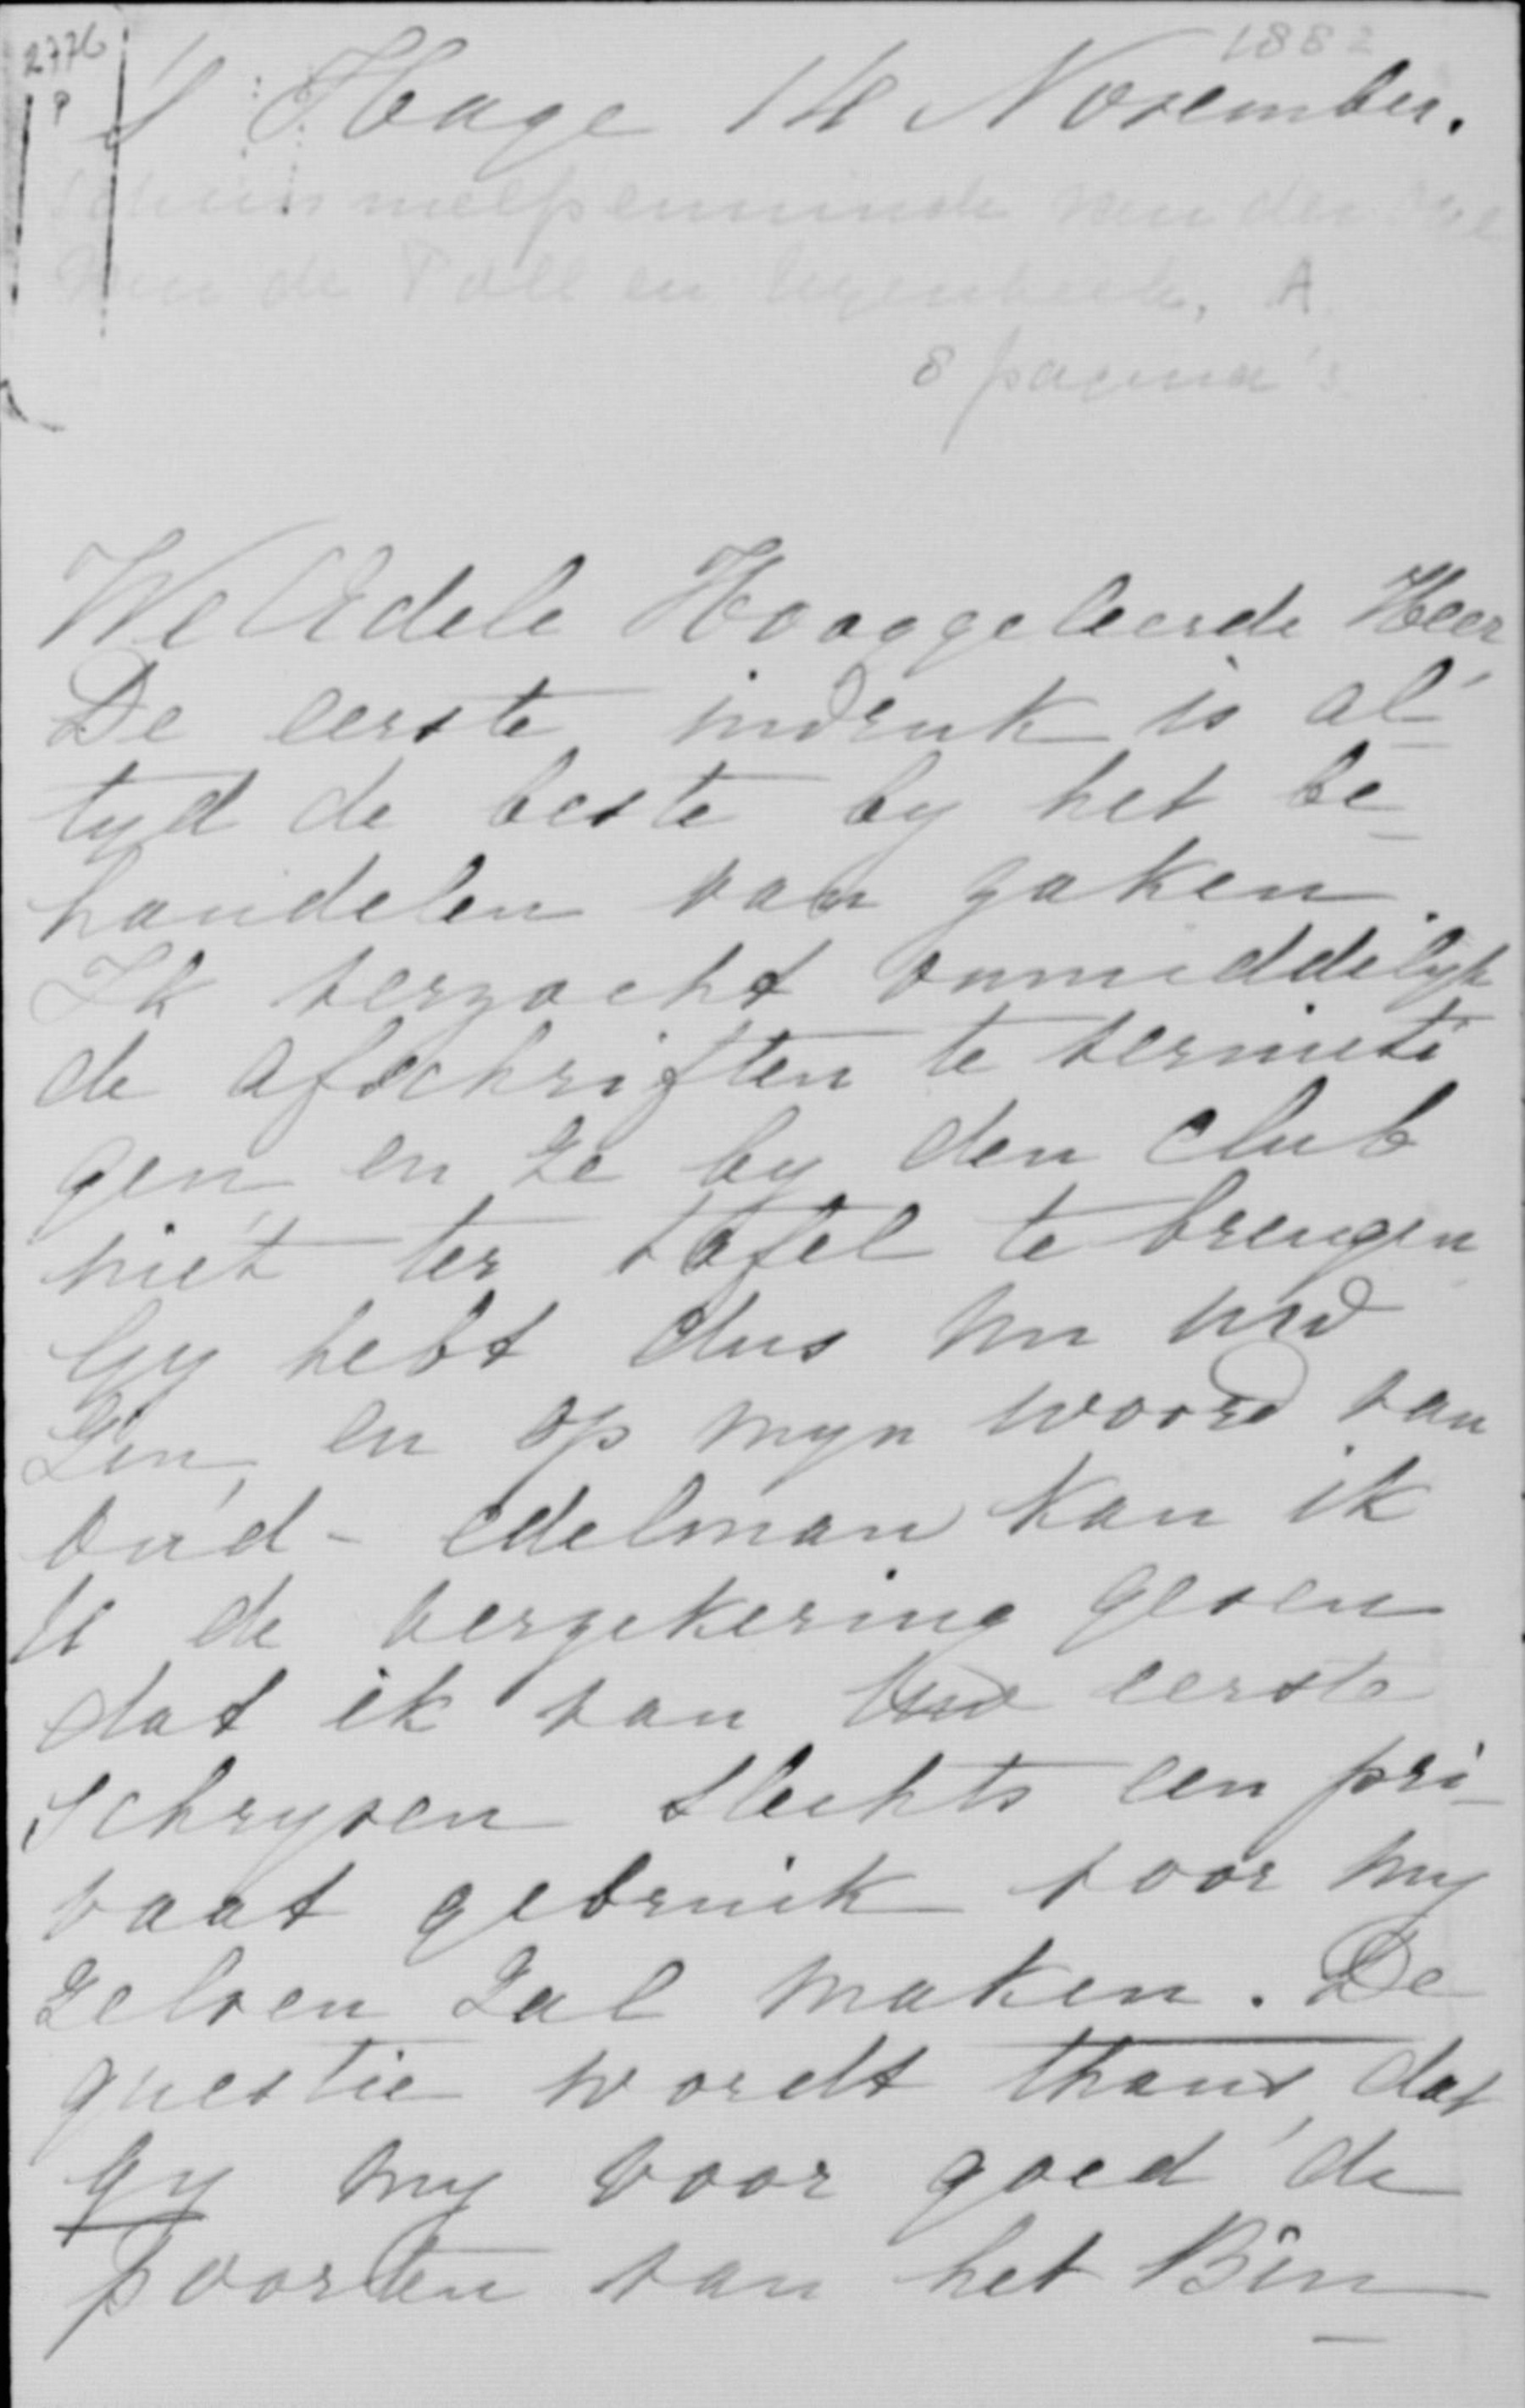 2776
P
1882
's Hage 14 November.
Schimmelpenninck van der Oye
van de Poll en Nyenbeek, A
8 pagina's
WelEdele Hooggeleerde Heer
De eerste indruk is al-
tyd de beste by het be-
handelen van zaken.
Ik verzocht onmiddelyk
de afschriften te vernieti
gen en ze by den club
niet ter tafel te brengen
Gy hebt dus nu uw
zin, en op myn woord van
oud-edelman kan ik
U de verzekering geven
dat ik van Uw eerste
schryven slechts een pri-
vaat gebruik voor my
zelven zal maken. De
questie wordt thans, dat
gy my voor goed de
poorten van het Bin-